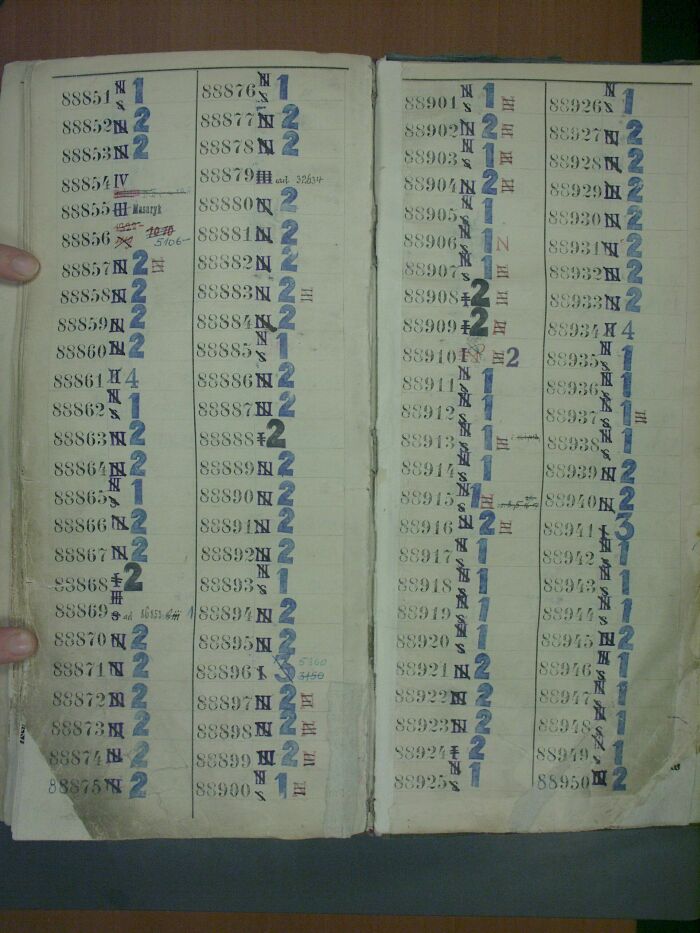 88851 N S 1
88852 N 2
88853 N 2
88854 IV
88855 III Masaryk
88856 1010 5106-
88857 N 2 III
88858 N 2
88859 N 2
88860 N 2
88861 H 4
88862 N S 1
88863 N 2
88864 N 2
88865 N S 1
88866 N 2
88867 N 2
88868 I 2
88869 III S ad 1
88870 N 2
88871 N 2
88872 N 2
88873 N 2
88874 N 2
88875 N 2
88876 N S 1
88877 N 2
88878 N 2
88879 III ad 32634
88880 N 2
88881 N 2
88882 N 2
88883 N 2 III
88884 N 2
88885 N S 1
88886 N 2
88887 N 2
88888 I 2
88889 N 2
88890 N 2
88891 N 2
88892 N 2
88893 N S 1
88894 N 2
88895 N 2
88896 I 3 5360 3150
88897 N 2 III
88898 N 2 III
88899 N 2 III
88900 N S 1 III
88901 N S 1 III
88902 N 2 III
88903 N S 1 III
88904 N 2 III
88905 N S 1
88906 N S 1 N
88907 N S 1 III
88908 I 2 III
88909 I 2 III
88910 I III 2
88911 N S 1
88912 N S 1
88913 N S 1 III
88914 N S 1
88915 N S 1 III
88916 N 2 III
88917 N S 1
88918 N S 1
88919 N S 1
88920 N S 1
88921 N 2
88922 N 2
88923 N 2
88924 I 2
88925 N S 1
88926 N S 1
88927 N 2
88928 N 2
88929 N 2
88930 N 2
88931 N 2
88932 N 2
88933 N 2
88934 H 4
88935 N S 1
88936 N S 1
88937 N S 1 III
88938 N S 1
88939 N 2
88940 N 2
88941 I 3
88942 N S 1
88943 N S 1
88944 N S 1
88945 N 2
88946 N S 1
88947 N S 1
88948 N S 1
88949 N S 1
88950 N 2